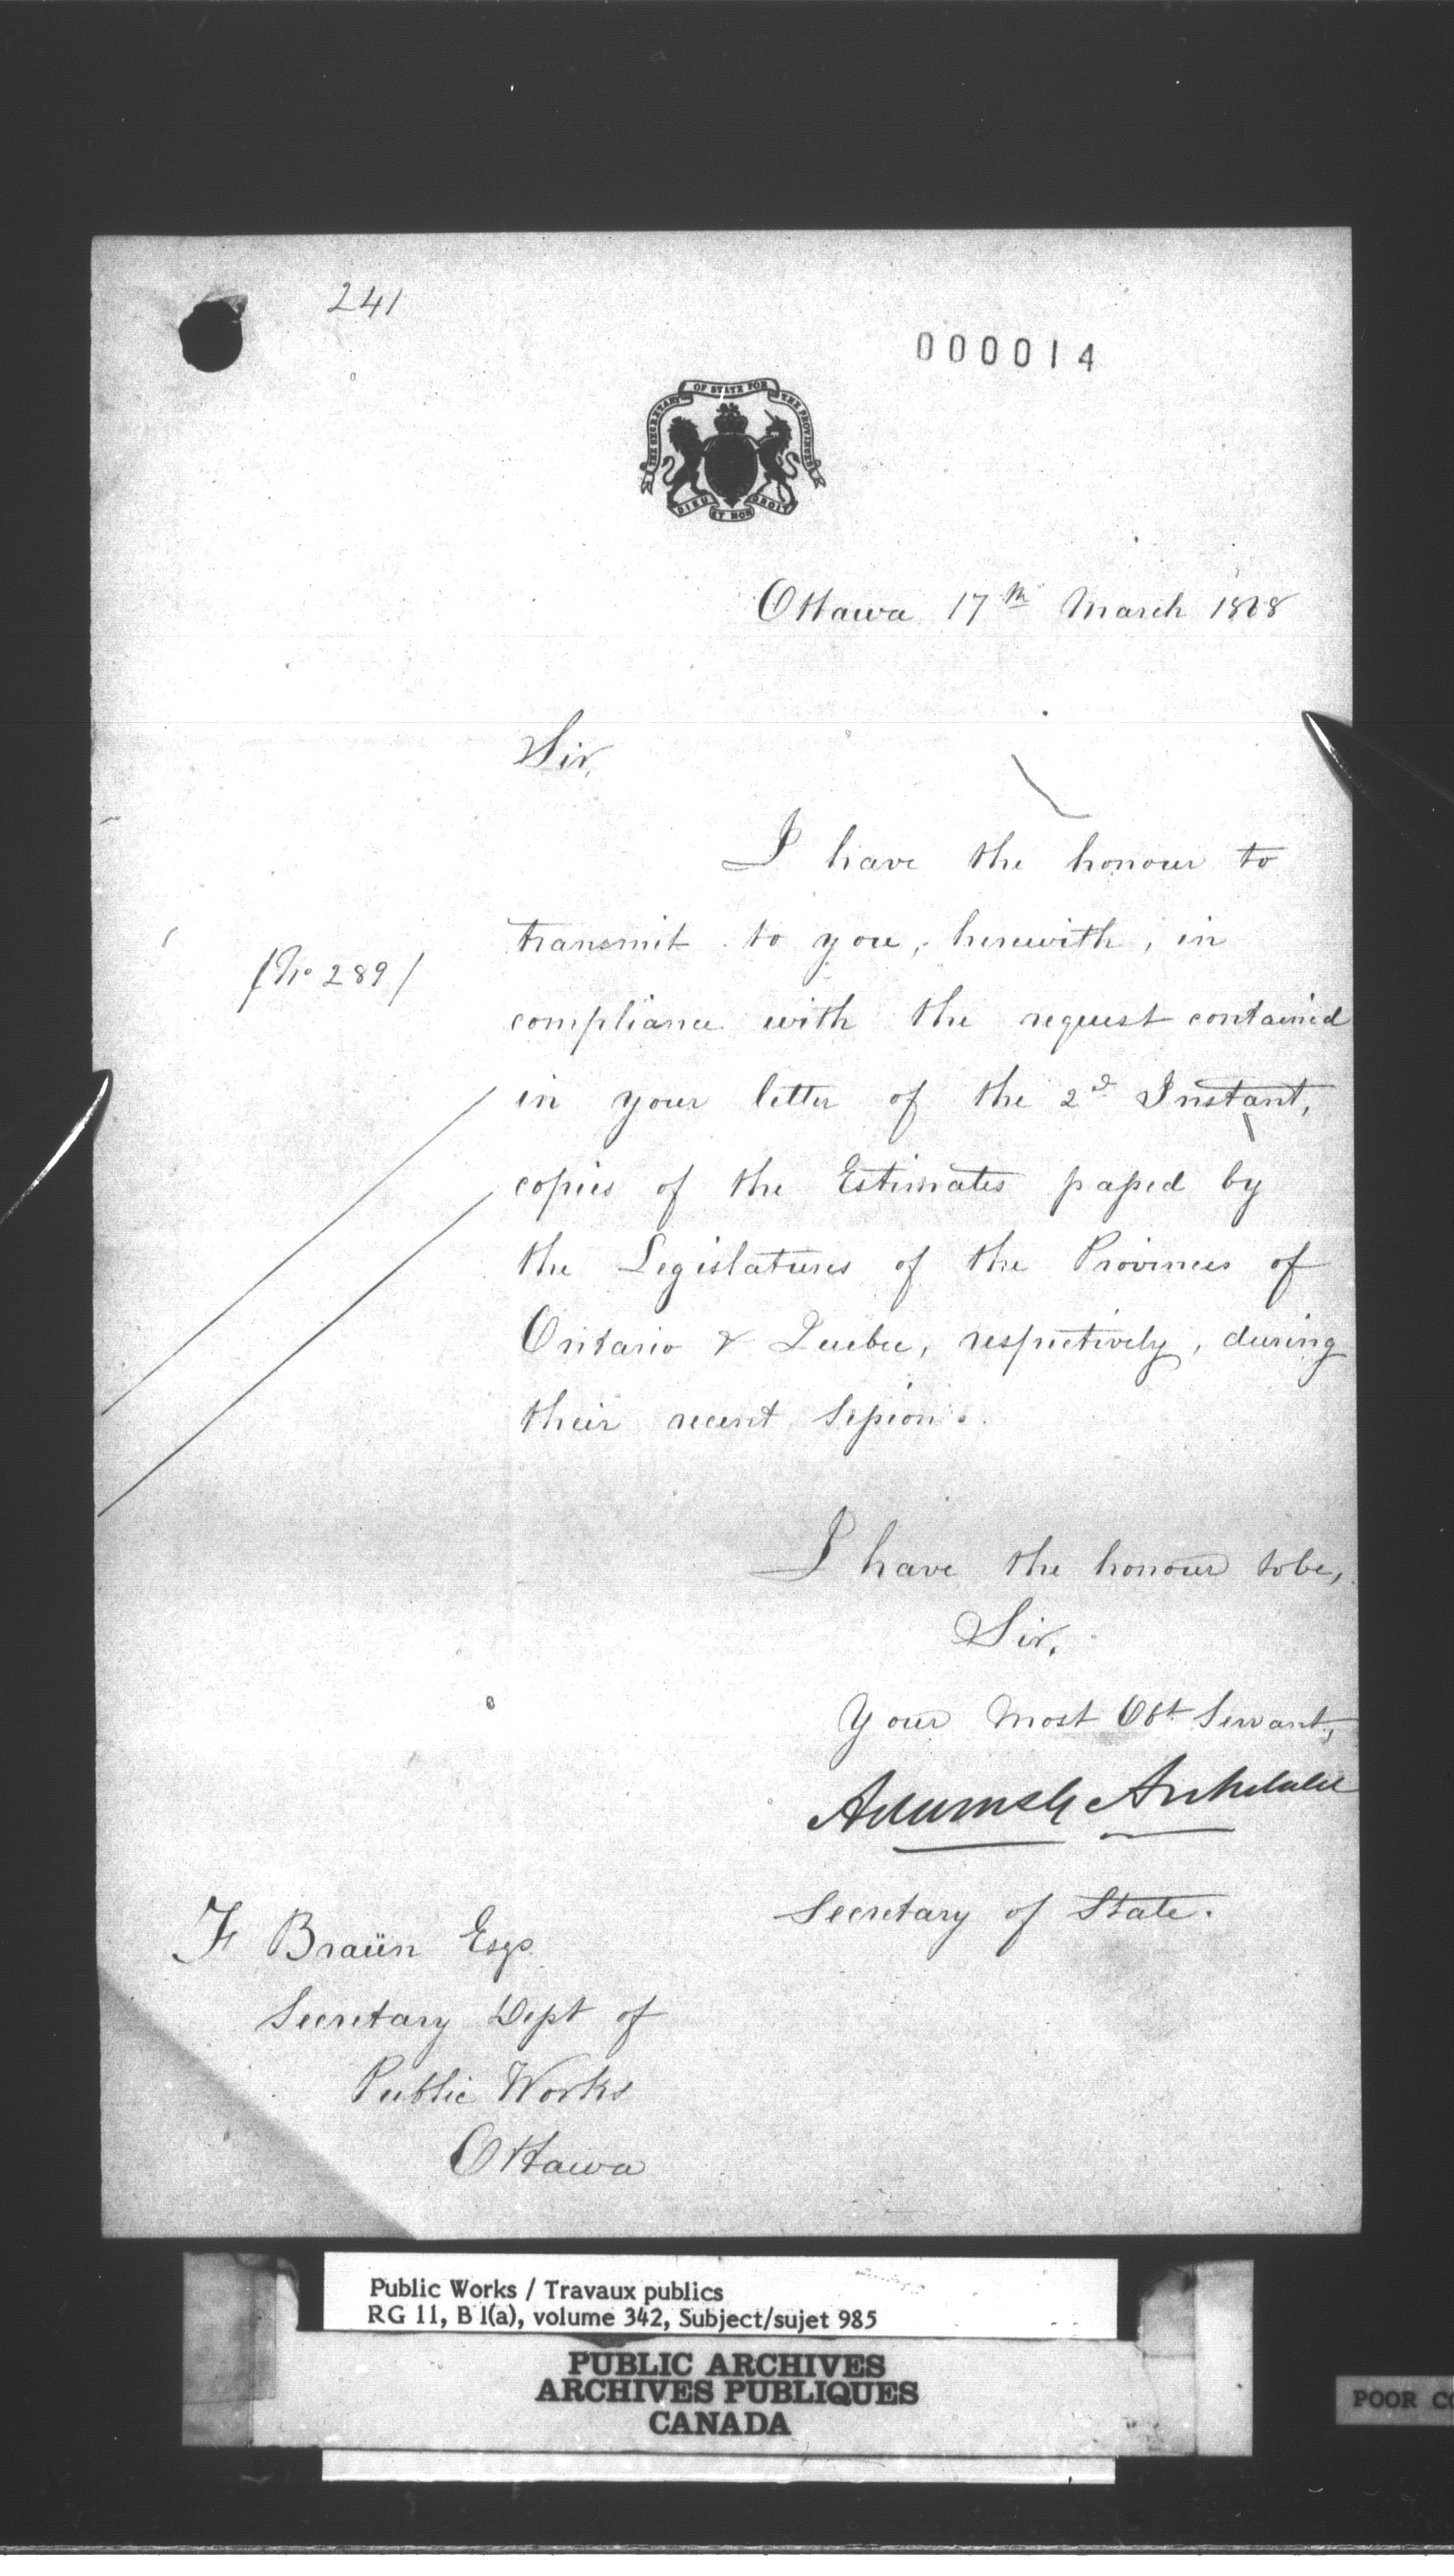 241
000014
THE SECRETARY OF STATE FOR THE PROVINCES
DIEU ET MON DROIT
Ottawa 17th March 1868
Sir,
I have the honour to
transmit to you, herewith, in
(No 289)
compliance with the request contained
in your letter of the 2d Instant,
copies of the Estimates passed by
the Legislatures of the Provinces of
Ontario & Quebec, respectively, during
their recent Session.
I have the honour to be,
Sir,
Your Most Obt Servant,
Adams G Archibald
Secretary of State.
F Braün Esqe
Secretary Dept of
Public Works
Ottawa
Public Works / Travaux publics
RG 11, B 1(a), volume 342, Subject/sujet 985
PUBLIC ARCHIVES
ARCHIVES PUBLIQUES
CANADA
POOR CO